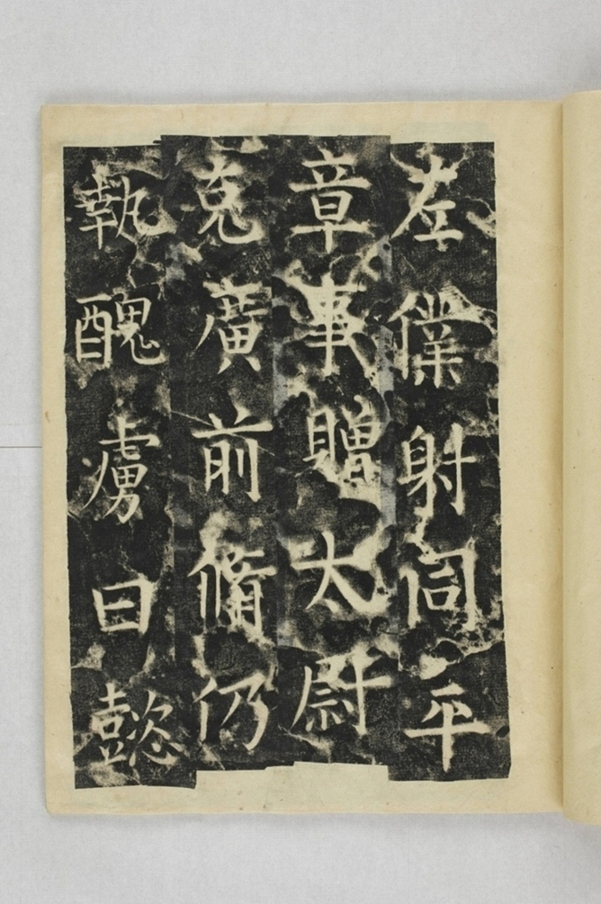 左僕射同平
章事贈太尉
克廣前脩仍
執醜虜曰懿